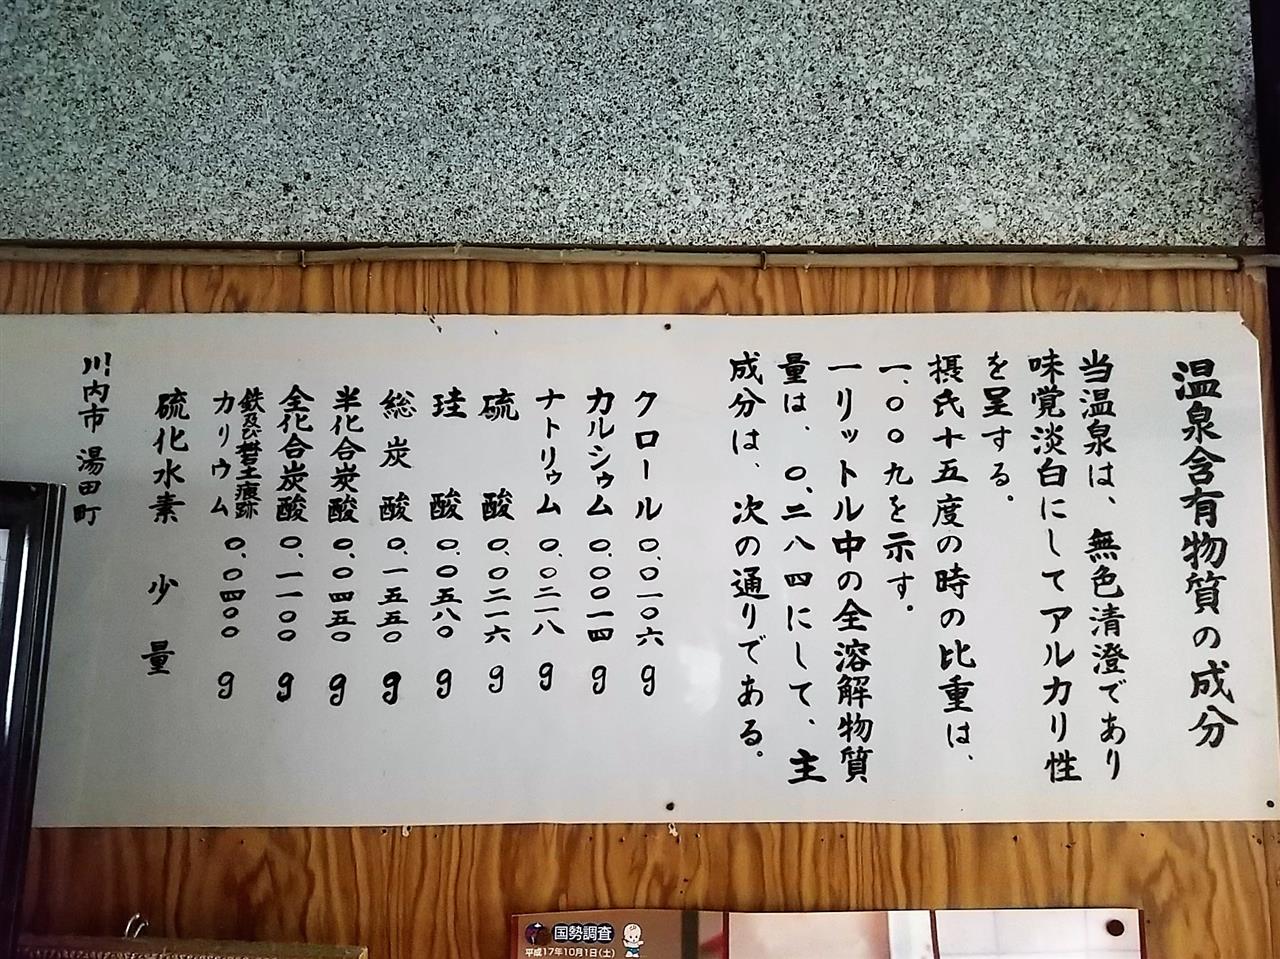 温泉含有物質の成分
当温泉は、無色清澄であり
味覚淡白にしてアルカリ性
を呈する。
摂氏十五度の時の比重は、
一、〇〇九を示す。
一リットル中の全溶解物質
量は、〇、二八四にして、主
成分は、次の通りである。
クロール 〇、〇一〇六g
カルシゥム 〇、〇〇一四g
ナトリゥム 〇、〇三一八g
硫酸 〇、〇二一六g
珪酸 〇、〇五八〇g
総炭酸 〇、一五五〇g
半化合炭酸 〇、〇四五〇g
全化合炭酸 〇、一一〇〇g
鉄及び礬土痕跡
カリウム 〇、〇四〇〇g
硫化水素 少量
川内市 湯田町
国勢調査
平成17年10月1日(土)